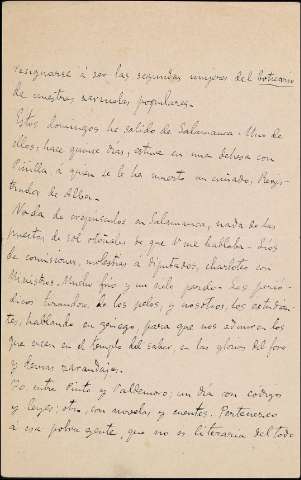 resignarse á ser las segundas mujeres del boticario
de nuestras zarzuelas populares.
Estos domingos he salido de Salamanca. Uno de
ellos, hace quince días, estuve en una dehesa con
Pinilla, á quien se le ha muerto un cuñado, Regis-
trador de Alba.
Nada de crepúsculos en Salamanca, nada de las
puestas de sol otoñales de que V. me hablaba. Líos
de comisiones, molestias á diputados, charloteo con
Ministros. Mucho frío y un cielo pardo. Los perió-
dicos tirandose de los pelos, y nosotros, los estudian-
tes, hablando en griego, para que nos admiren los
que creen en el templo del saber, en las glorias del foro
y demas zarandajas.
Yo entre Pinto y Valdemoro; un día con codigos
y leyes; otro, con novelas y cuentos. Pertenezco
á esa pobre gente, que no es literaria del todo